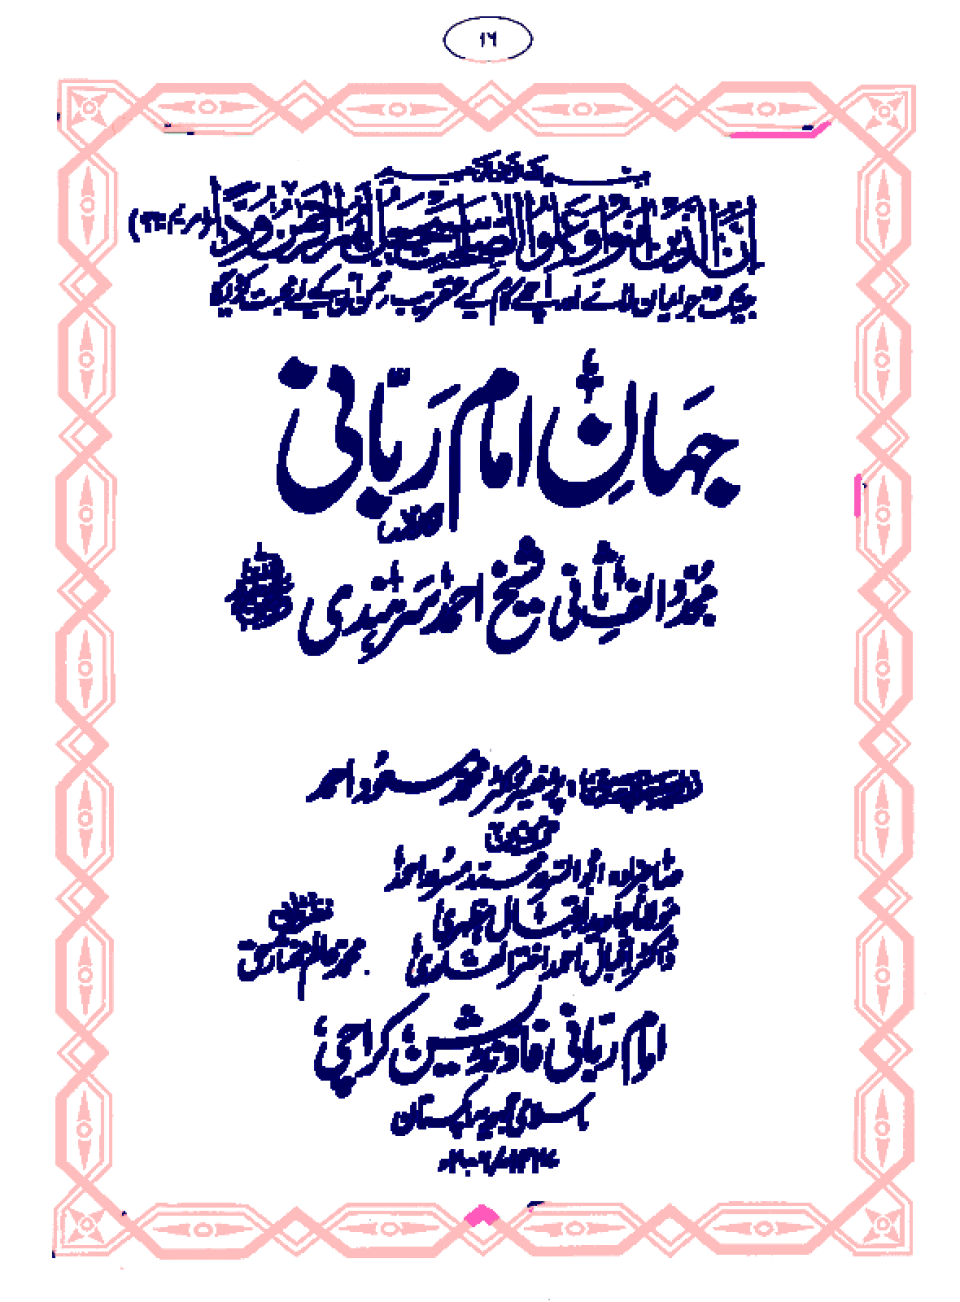 ۱۶
اِنَّ الَّذِیْنَ اٰمَنُوْا وَعَمِلُوا الصّٰلِحٰتِ سَیَجْعَلُ لَهُمُ الرَّحْمٰنُ وُدًّا (مریم:۹۶)
بیشک وہ جو ایمان لائے اور اچھے کام کیے عنقریب رحمٰن ان کے لیے محبت کر دیگا
جہانِ امام ربّانی
مجدّد الفِ ثانی شیخ احمد سَرہندی
پروفیسر ڈاکٹر محمد مسعود احمد
صاحبزادہ ابوالسّرور محمد مسرور احمد
مولانا جاوید اقبال مظہری
ڈاکٹر اقبال احمد اختر القادری
امام ربّانی فاؤنڈیشن، کراچی
اسلامی جمہوریہ پاکستان